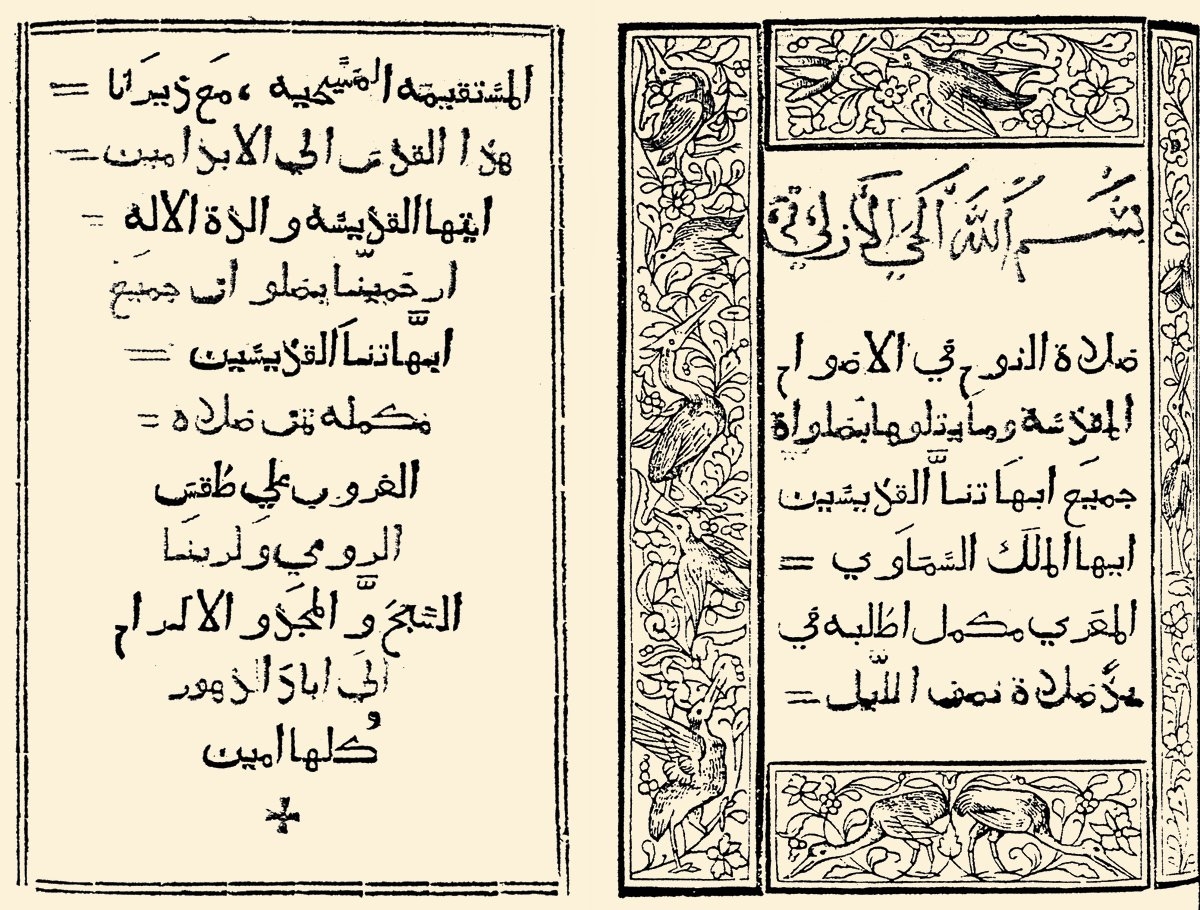 بسم الله الحي الازلي
صلاة النوح في الاضواح
المقدسة وما يتلوها بصلواة
جميع ابهاتنا القديسين
ايها الملك السماوي =
المعزي مكمل اطلبه في
صلاة نصف الليل =
المستقيمه المسيحيه ، مع =
هذا القدس الي الابد امين =
ايتها القديسه والدة الاله =
ارحمينا بصلواتى جميع
ابهاتنا القديسين =
مكمله صلاه =
الغروب علي طقس
الرومي ولربنا
السبح و المجد و الاكرام
الي اباد الدهور
كلها امين